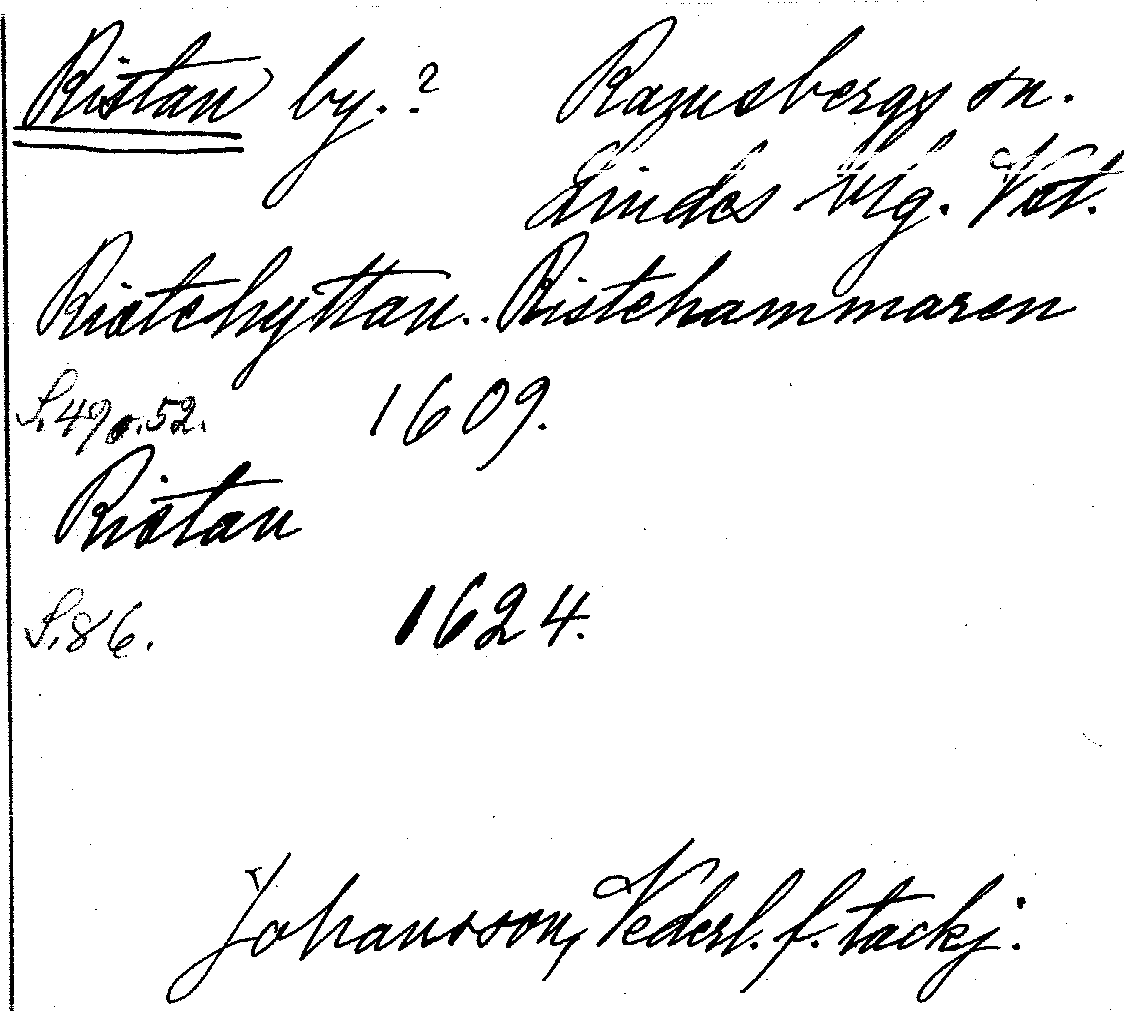 Ristan by.? Ramsbergs sn.
Lindes blg. Vst.
Ristehyttan.. Ristehammaren
S.49 o.52. 1609.
Ristan
S.86. 1624.
Johansson, Vederl. f. tackj.